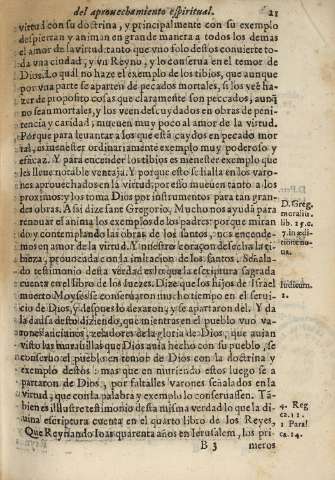 del aprouechamiento espiritual. 21
virtud con su doctrina, y principalmente con su exemplo
despiertan y animan en grande manera a todos los demas
al amor de la virtud: tanto que vno solo destos conuierte to-
da vna ciudad, y vn Reyno, y lo conserua en el temor de
Dios. Lo qual no haze el exemplo de los tibios, que aunque
por vna parte se aparten de pecados mortales, si los veē ha-
zer de proposito cosas que claramente son peccados, aunq̄
no sean mortales, y los veen descuydados en obras de peni-
tencia y caridad, mueuen muy poco al amor de la virtud.
Porque para leuantar a los que està caydos en pecado mor
tal, es menester ordinariamente exemplo muy poderoso y
eficaz. Y para encender los tibios es menester exemplo que
les lleue notable ventaja. Y porque esto se halla en los varo-
nes aprouechados en la virtud; por esso mueuen tanto a los
proximos: y los toma Dios por instrumentos para tan gran-
des obras. Assi dize sant Gregorio, Mucho nos ayuda para
renouar el anima los exemplos de los padres: por que miran
do y contemplando las obras de los santos, nos encende-
mos en amor de la virtud. Y nuestro coraçon desecha la ti-
bieza, prouocada con la imitacion de los santos. Señala-
do testimonio desta verdad es lo que la escriptura sagrada
cuenta en el libro de los Iuezes. Dize que los hijos de Israel
muerto Moyses se conseruaron mucho tiempo en el serui-
cio de Dios, y despues lo dexaron, y se apartaron del. Y da
la causa desto diziendo, que mientras en el pueblo vuo va-
rones ancianos, zeladores de la gloria de Dios, que auian
visto las marauillas que Dios auia hecho con su pueblo, se
conseruo el pueblo en temor de Dios con la doctrina y
exemplo destos: mas que en muriendo estos luego se a
partaron de Dios, por faltalles varones señalados en la
virtud, que con la palabra y exemplo lo conseruassen. Tā-
bien es illustre testimonio desta misma verdad lo que la di-
uina escriptura cuenta en el quarto libro de los Reyes,
Que Reynando Ioas quarenta años en Ierusalem, los pri-
B 3 meros
D. Greg.
moraliū.
lib. 25. c.
7. in edi
tione no-
ua.
Iudicum.
2.
4. Reg
ca. 12.
1 Paral
ca. 14.